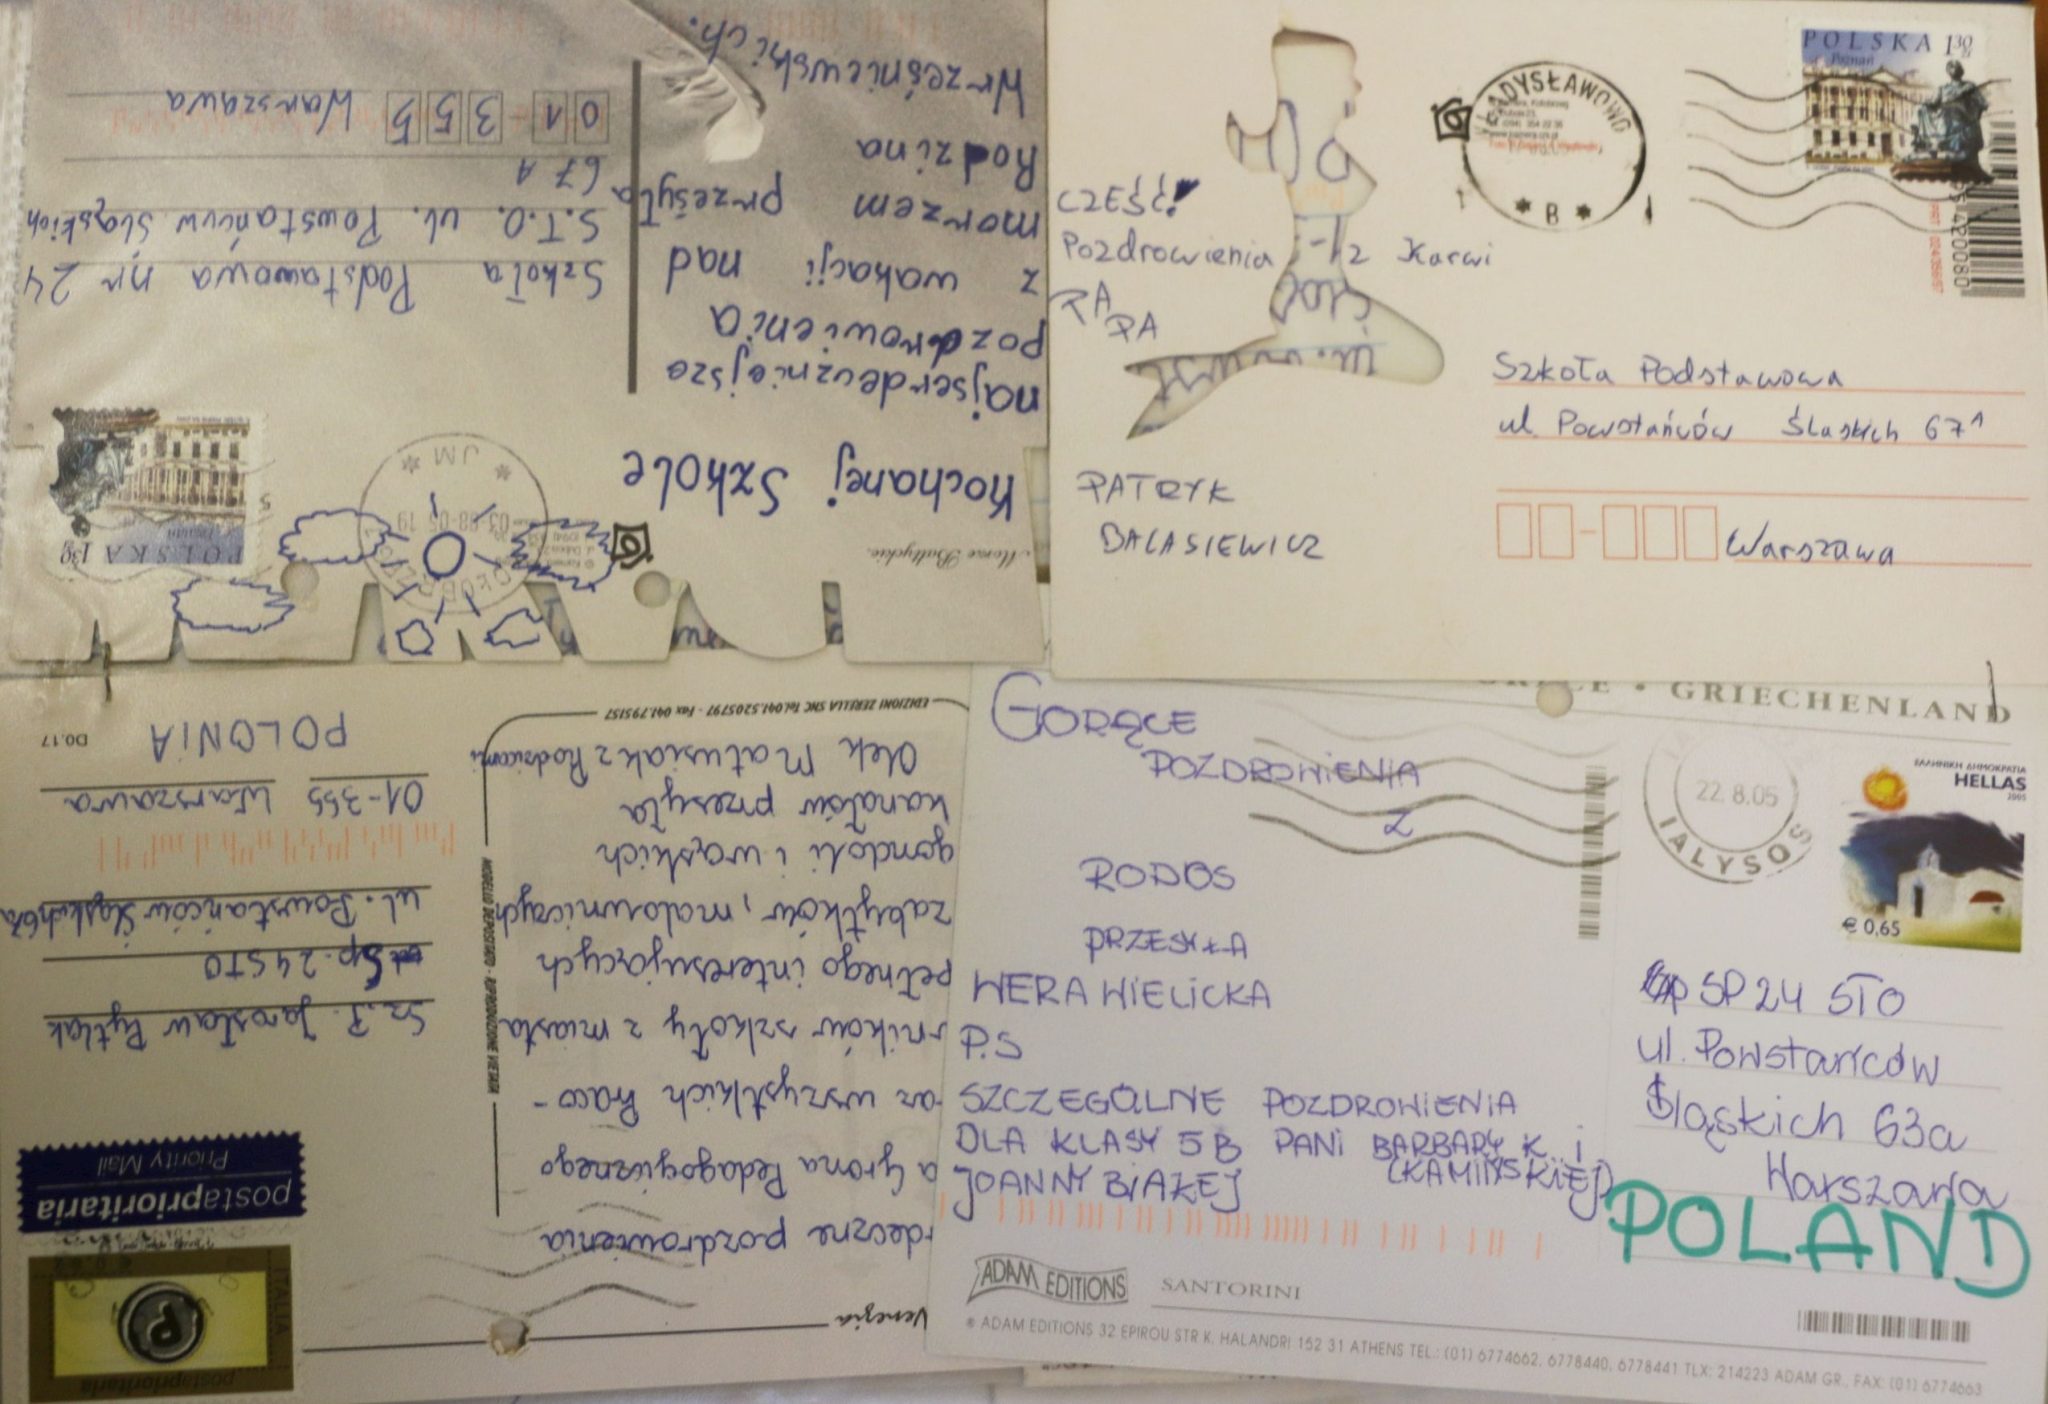 Kochanej Szkole
najserdeczniejsze
pozdrowienia
z wakacji nad
morzem przesyła
Rodzina
Wrześniewskich.
Morze Bałtyckie.
POLSKA 130
Poznań
* JM *
03-08-05 19
Szkoła Podstawowa nr 24
S.T.O. ul. Powstańców Śląskich
67A
01-355 Warszawa
CZEŚĆ!
Pozdrowienia z Karwi
PA
PA
PATRYK
BALASIEWICZ
WŁADYSŁAWOWO
* B *
POLSKA 130
Poznań
Szkoła Podstawowa
ul Powstańców Śląskich 67A
Warszawa
Venezia
deczne pozdrowienia
a Grona Pedagogicznego
az wszystkich Praco-
ników szkoły z miasta
pełnego interesujących
zabytków, malowniczych
gondoli i wąskich
kanałów przesyła
Olek Matusiak z Rodzicami
EDIZIONI ZERELLA SNC Tel. 041.5205797 - Fax 041.795157
MODELLO DEPOSITATO - RIPRODUZIONE VIETATA
ITALIA
postaprioritaria
postaprioritaria
Priority Mail
Sz.P. Jarosław Pytlak
Sp. 24 STO
ul. Powstańców Śląskich
01-355 Warszawa
POLONIA
D0.17
GRIECHENLAND
GORĄCE
POZDROWIENIA
Z
RODOS
PRZESYŁA
WERA WIELICKA
P.S
SZCZEGÓLNE POZDROWIENIA
DLA KLASY 5B PANI BARBARY K. i
(KAMIŃSKIEJ)
JOANNY BIAŁEJ
22.8.05
IALYSOS
ΕΛΛΗΝΙΚΗ ΔΗΜΟΚΡΑΤΙΑ
HELLAS
2005
€ 0,65
SP 24 STO
ul. Powstańców
Śląskich 63a
Warszawa
POLAND
ADAM EDITIONS SANTORINI
® ADAM EDITIONS 32 EPIROU STR K. HALANDRI 152 31 ATHENS TEL.: (01) 6774662, 6778440, 6778441 TLX: 214223 ADAM GR., FAX: (01) 6774663